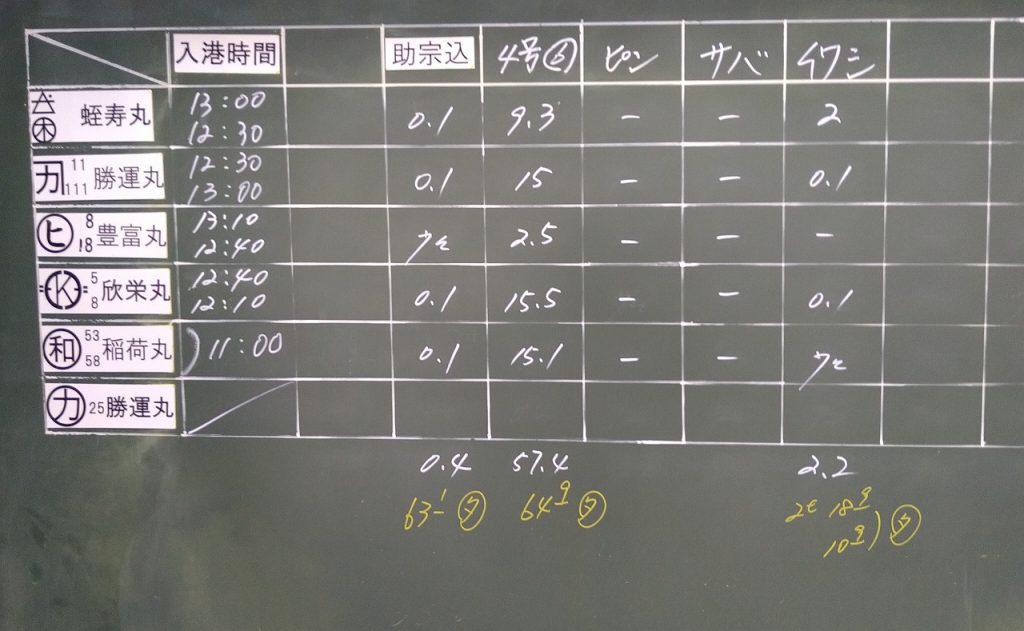 入港時間 助宗込 4号 ピン サバ イワシ
蛭寿丸 13:00 0.1 9.3 - - 2
12:30
カ 11 勝運丸 12:30 0.1 15 - - 0.1
111 13:00
ヒ 8 豊富丸 13:10 2.5 - - -
18 12:40
K 5 欣栄丸 12:40 0.1 15.5 - - 0.1
8 12:10
和 53 稲荷丸 11:00 0.1 15.1 - -
58
カ 25 勝運丸
0.4 57.4 2.2
63 64
18
10